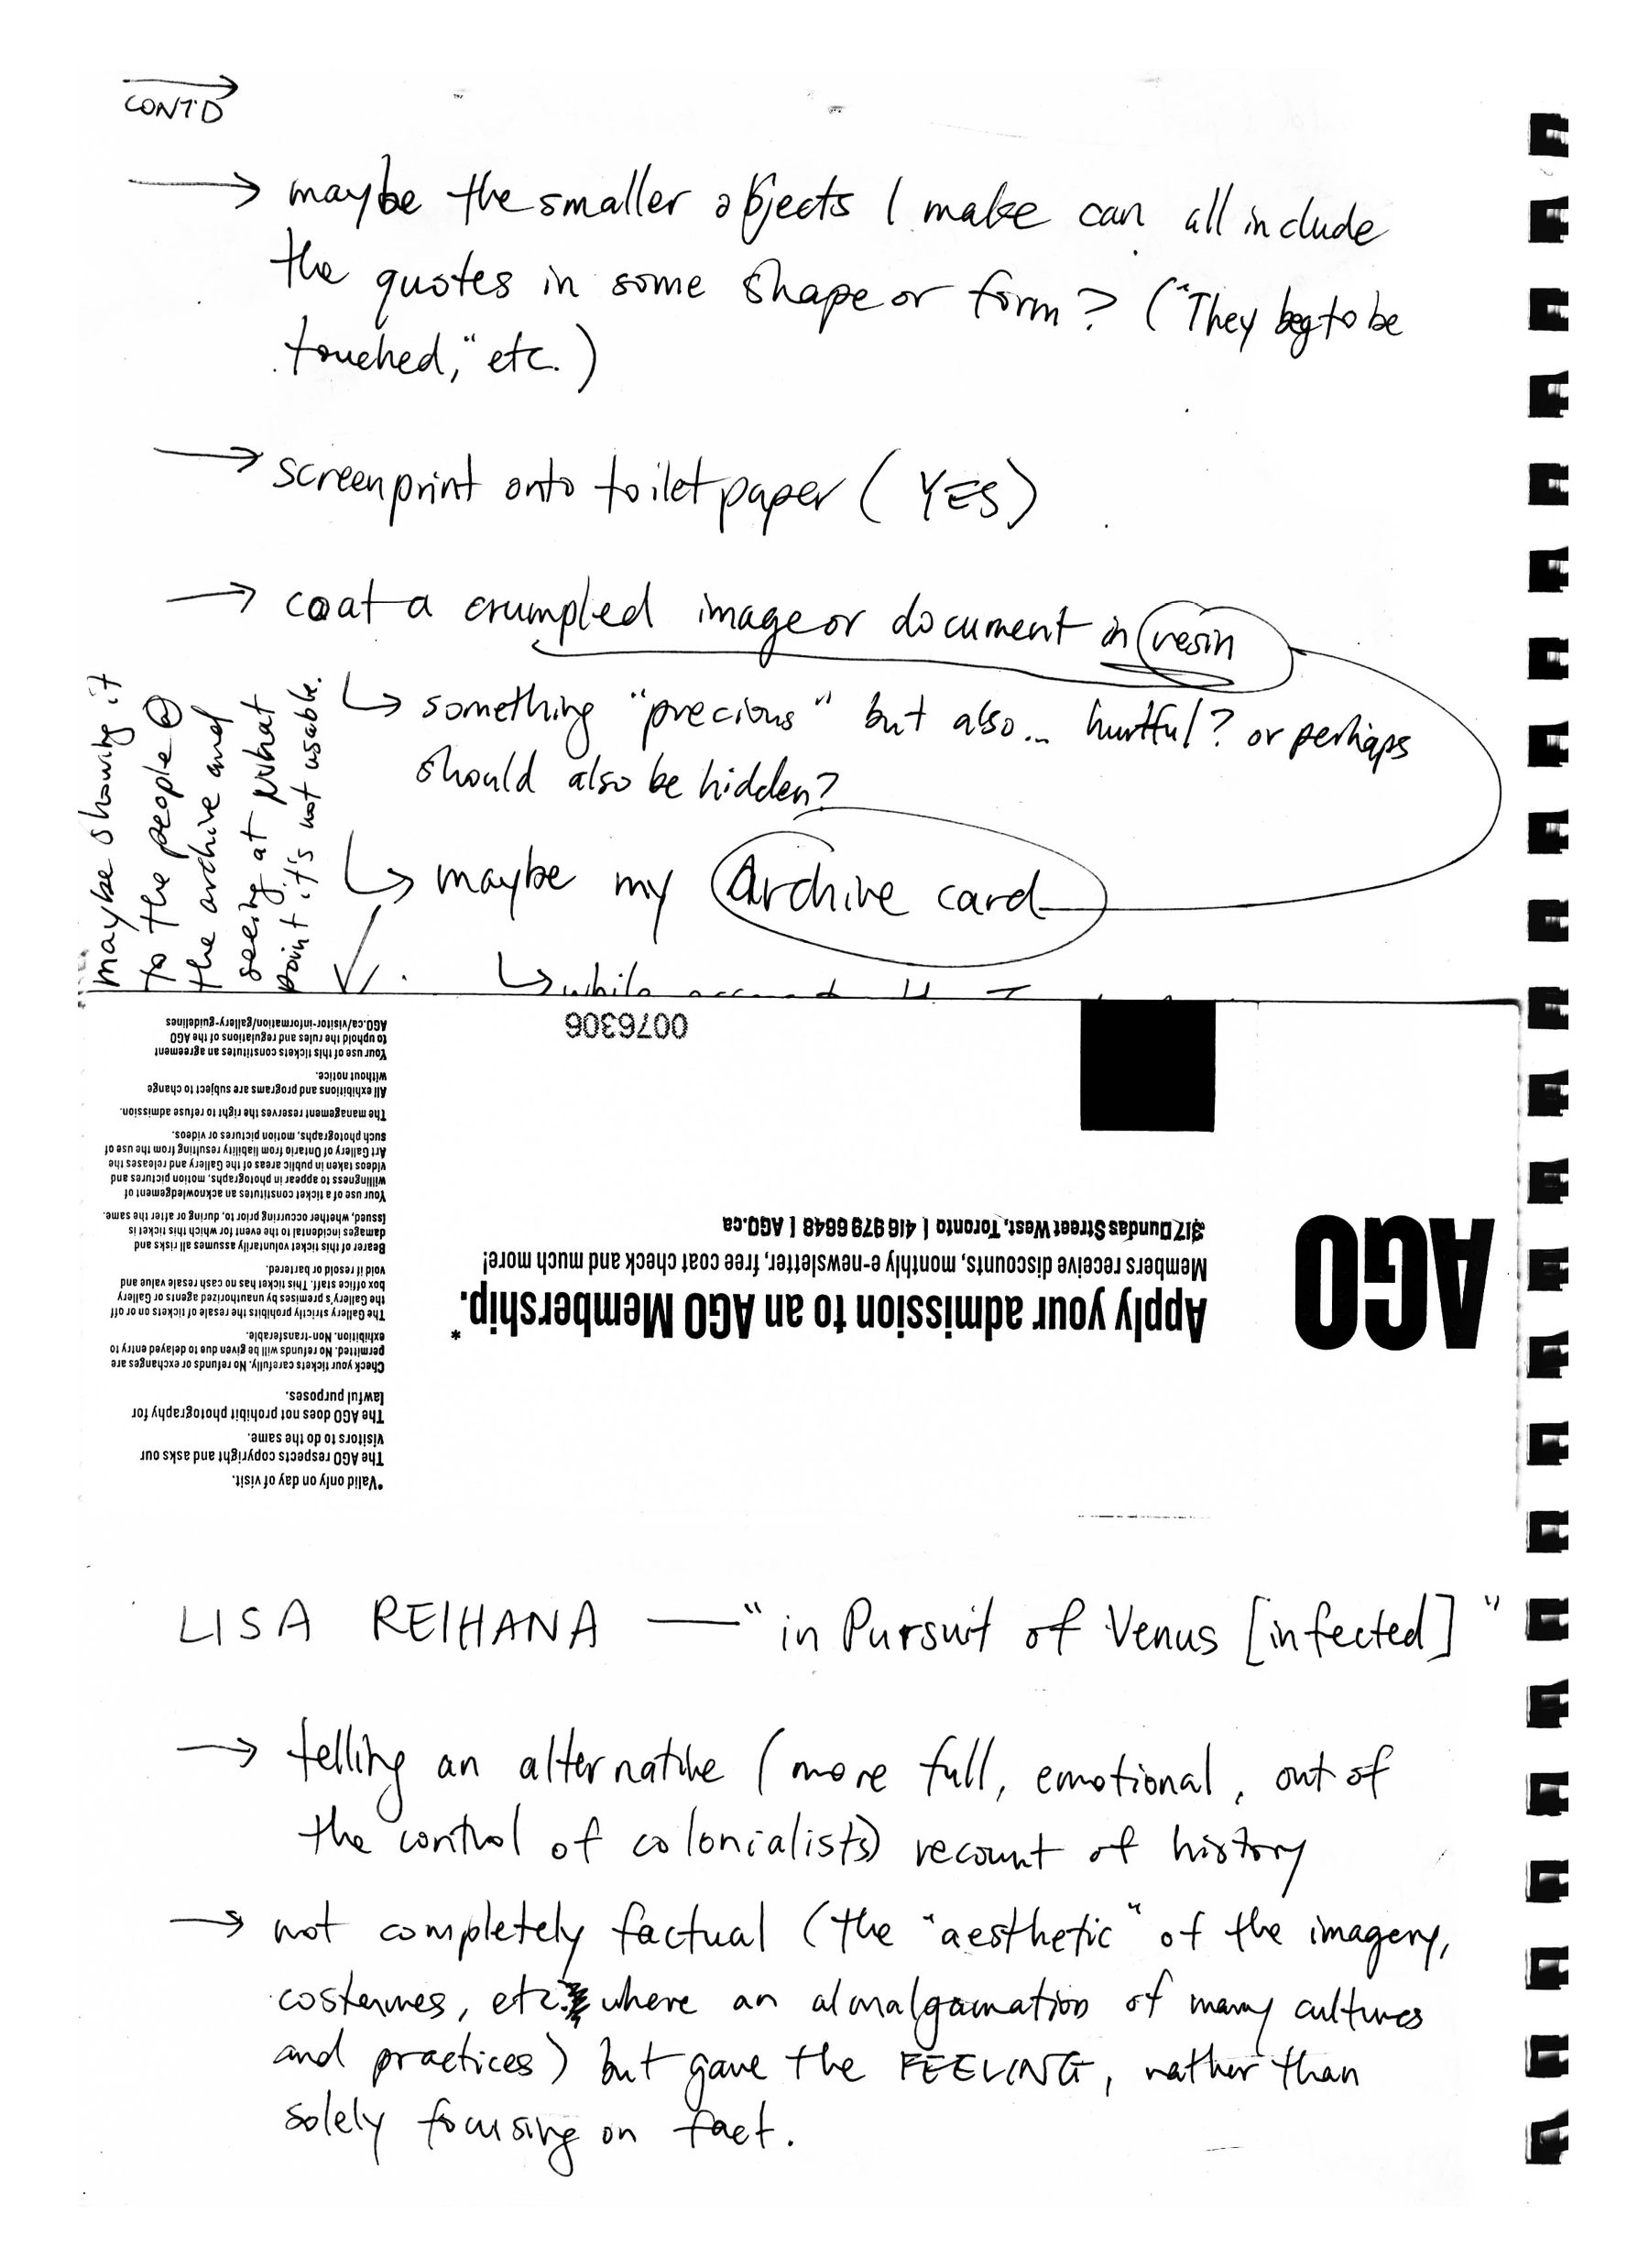 CONT'D
→ maybe the smaller objects I make can all include
the quotes in some shape or form? ("They beg to be
touched," etc.)
→ screenprint onto toilet paper (YES)
→ coat a crumpled image or document in resin
↳ something "precious" but also... hurtful? or perhaps
should also be hidden?
↳ maybe my Archive card
↳ while
maybe showing it
to the people @
the archive and
seeing at what
point it's not usable.
0076306
AGO
Apply your admission to an AGO Membership.*
Members receive discounts, monthly e-newsletter, free coat check and much more!
317 Dundas Street West, Toronto | 416 979 6648 | AGO.ca
*Valid only on day of visit.
The AGO respects copyright and asks our
visitors to do the same.
The AGO does not prohibit photography for
lawful purposes.
Check your tickets carefully. No refunds or exchanges are
permitted. No refunds will be given due to delayed entry to
exhibition. Non-transferable.
The Gallery strictly prohibits the resale of tickets on or off
the Gallery's premises by unauthorized agents or Gallery
box office staff. This ticket has no cash resale value and
void if resold or bartered.
Bearer of this ticket voluntarily assumes all risks and
damages incidental to the event for which this ticket is
issued, whether occurring prior to, during or after the same.
Your use of a ticket constitutes an acknowledgement of
willingness to appear in photographs, motion pictures and
videos taken in public areas of the Gallery and releases the
Art Gallery of Ontario from liability resulting from the use of
such photographs, motion pictures or videos.
The management reserves the right to refuse admission.
All exhibitions and programs are subject to change
without notice.
Your use of this tickets constitutes an agreement
to uphold the rules and regulations of the AGO
AGO.ca/visitor-information/gallery-guidelines
LISA REIHANA — "in Pursuit of Venus [infected]"
→ telling an alternative (more full, emotional, out of
the control of colonialists) recount of history
→ not completely factual (the "aesthetic" of the imagery,
costumes, etc. where an almalgamation of many cultures
and practices) but gave the FEELING, rather than
solely focusing on fact.